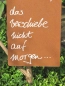 das
Verschiebe
nicht
auf
morgen...